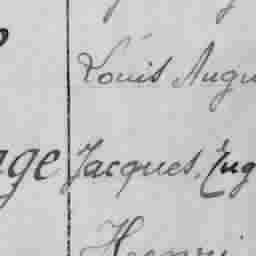 Louis Augu
age Jacques, Eug
Henri